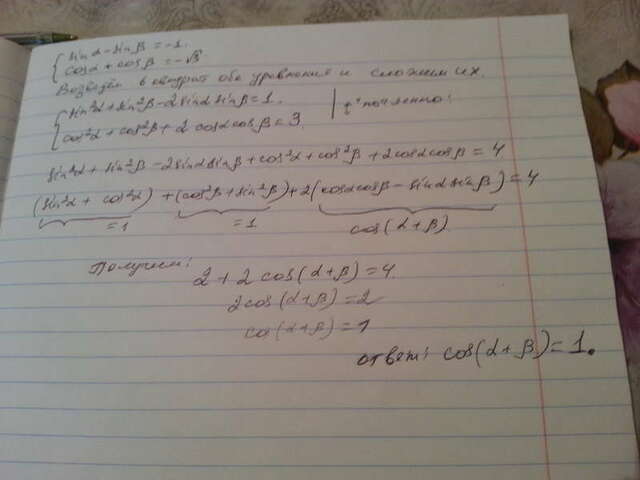 { sin α − sin β = −1.
cos α + cos β = −√3
Возведём в квадрат обе уравнения и сложим их.
{ sin²α + sin²β − 2 sin α sin β = 1.
cos²α + cos²β + 2 cos α cos β = 3. | + почленно!
sin²α + sin²β − 2 sin α sin β + cos²α + cos²β + 2 cos α cos β = 4
(sin²α + cos²α) + (cos²β + sin²β) + 2(cos α cos β − sin α sin β) = 4
= 1 = 1 cos(α + β)
Получим:
2 + 2 cos(α + β) = 4
2 cos(α + β) = 2
cos(α + β) = 1
ответ: cos(α + β) = 1.